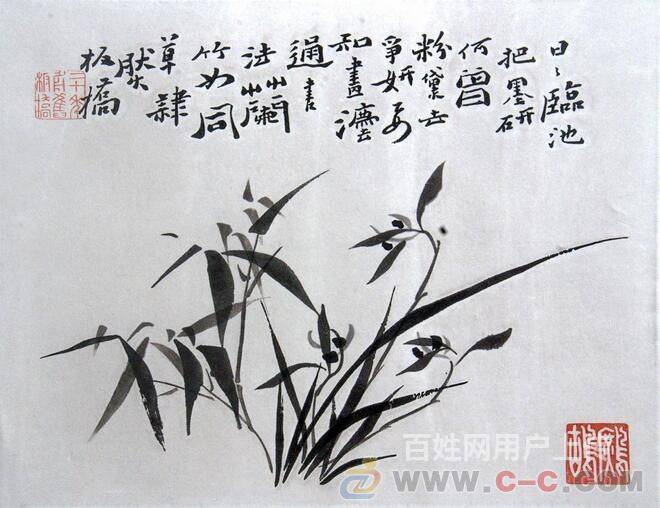 日〻臨池
把墨研
何曾
粉黛去
爭妍要
知畫灋
通書
法蘭
竹如同
草隸
肰
板橋
鷓鴣
百姓网用户上
www.c-c.com